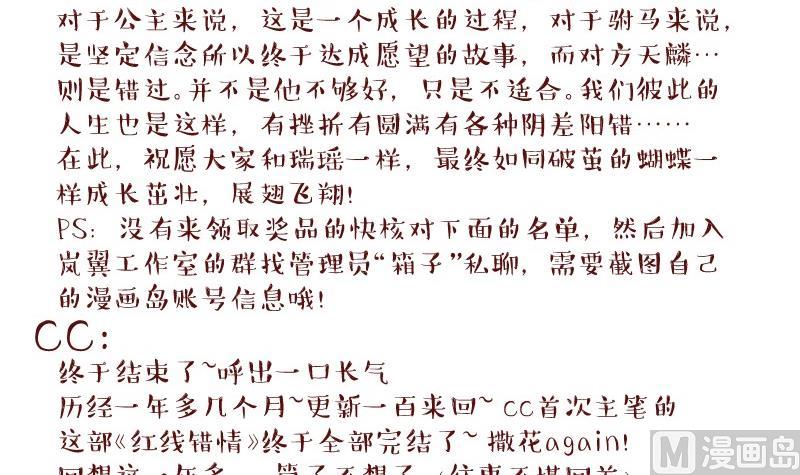 对于公主来说，这是一个成长的过程，对于驸马来说，
是坚定信念所以终于达成愿望的故事，而对方天麟…
则是错过。并不是他不够好，只是不适合。我们彼此的
人生也是这样，有挫折有圆满有各种阴差阳错……
在此，祝愿大家和瑞瑶一样，最终如同破茧的蝴蝶一
样成长茁壮，展翅飞翔！
PS：没有来领取奖品的快核对下面的名单，然后加入
岚翼工作室的群找管理员“箱子”私聊，需要截图自己
的漫画岛账号信息哦！
CC：
终于结束了~呼出一口长气
历经一年多几个月~更新一百来回~cc首次主笔的
这部《红线错情》终于全部完结了~撒花again！
漫画岛